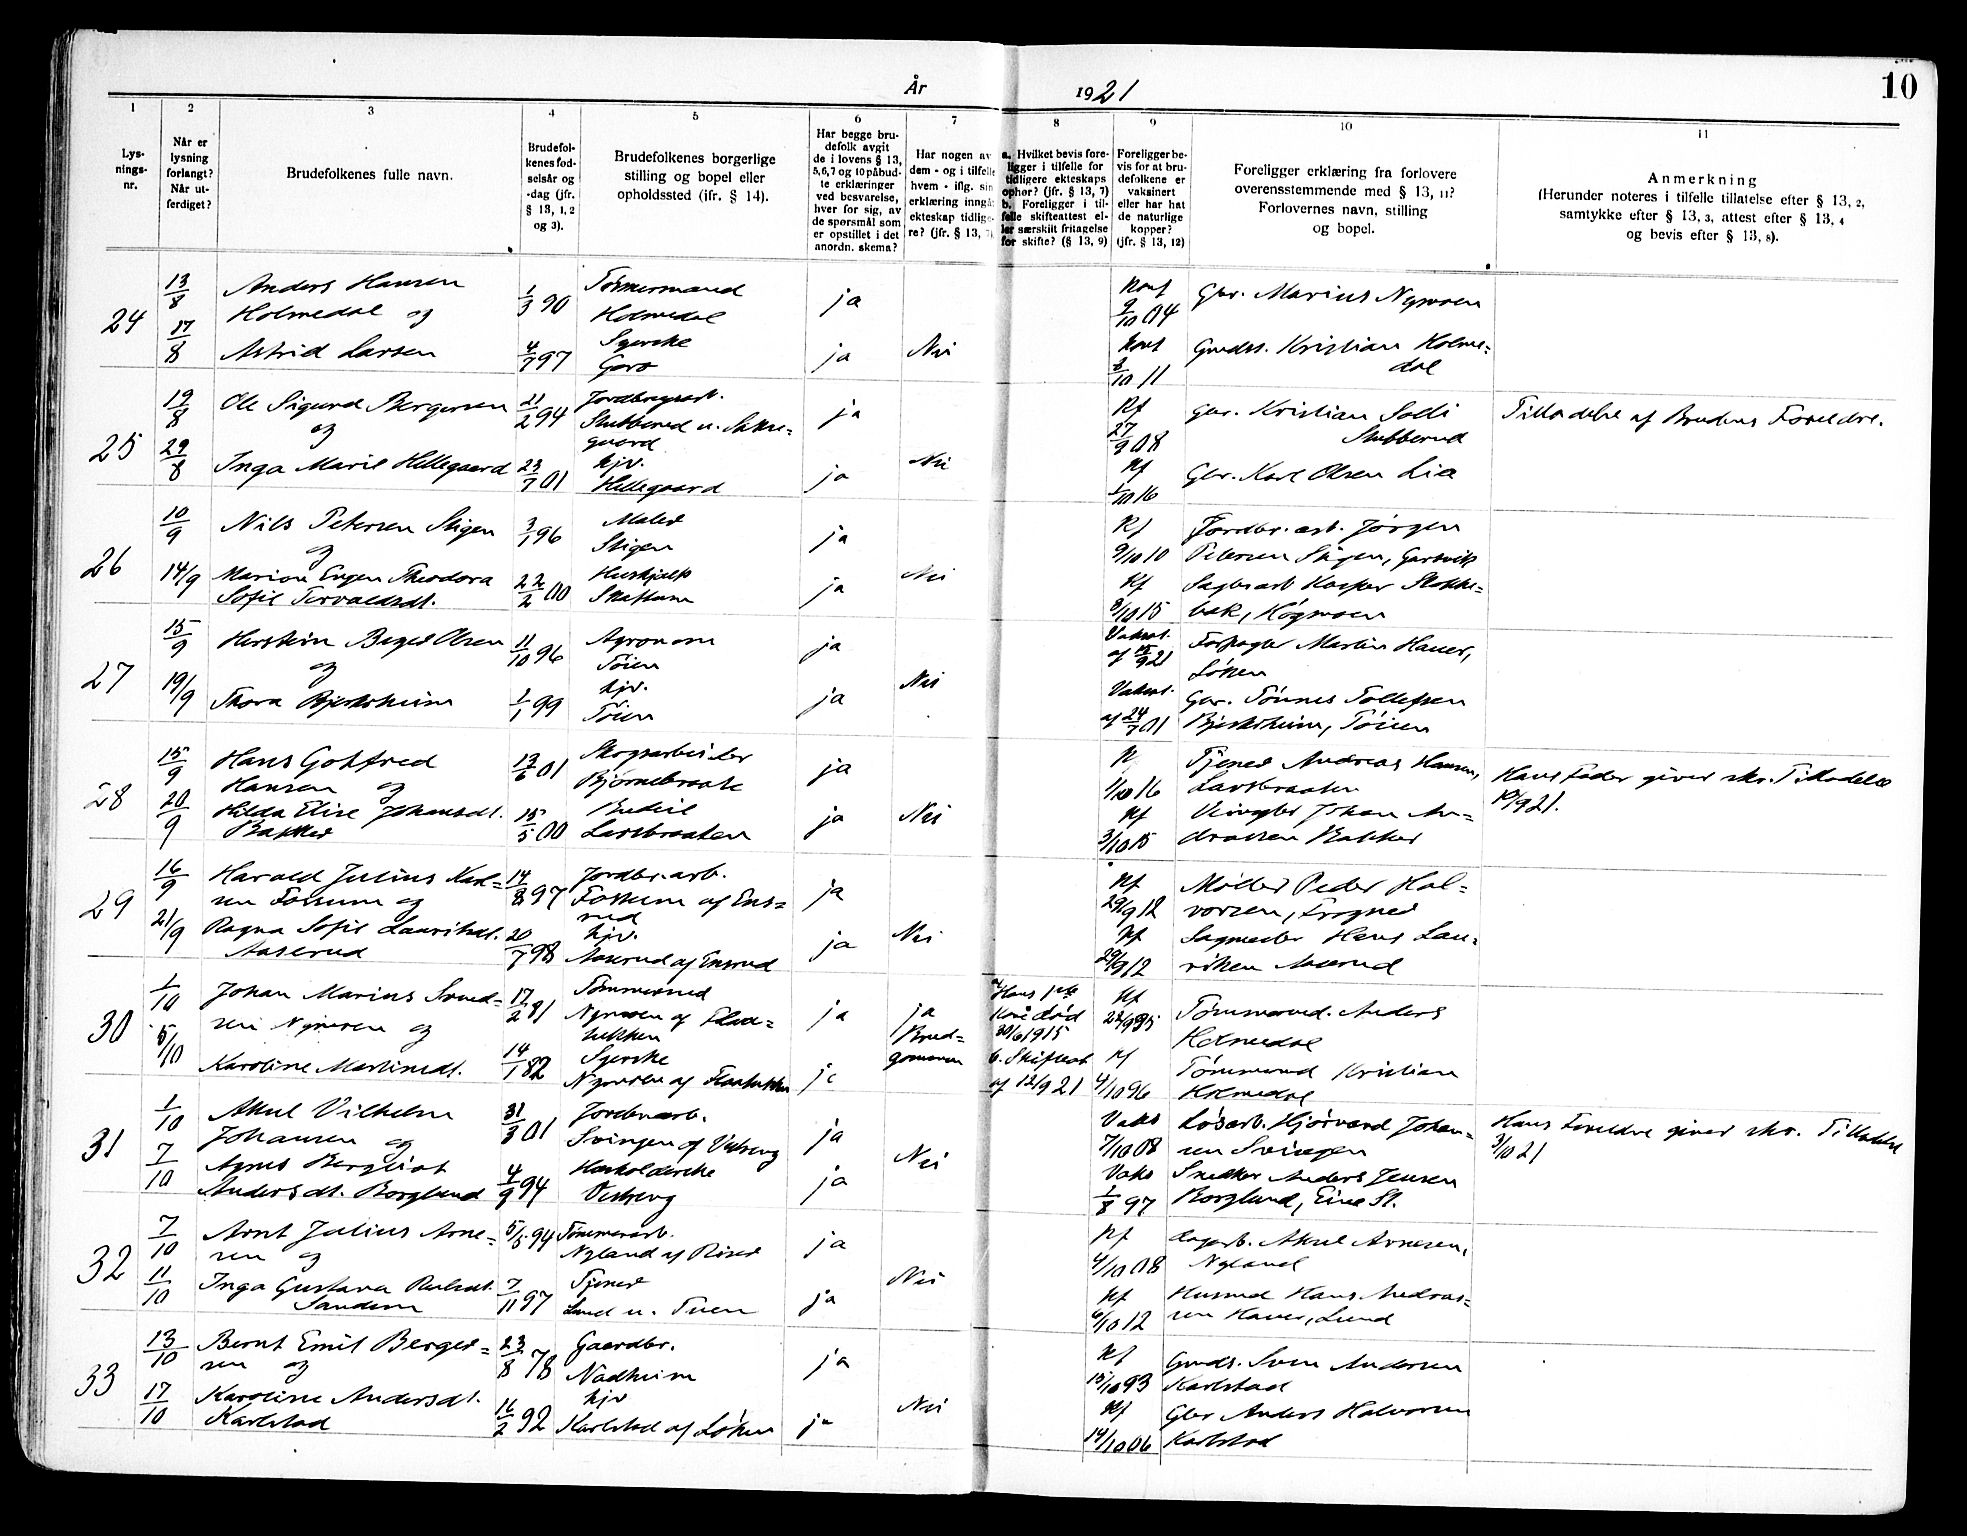 10
År 1921
1 2 3 4 5 6 7 8 9 10 11
Lysningsnr.
Når er lysning forlangt? Når utferdiget?
Brudefolkenes fulle navn.
Brudefolkenes fødselsår og -dag (jfr. § 13, 1, 2 og 3).
Brudefolkenes borgerlige stilling og bopel eller opholdssted (ifr. § 14).
Har begge brudefolk avgit de i lovens § 13, 5, 6, 7 og 10 påbudte erklæringer ved besvarelse, hver for sig, av de spørsmål som er opstillet i det anordn. skema?
Har nogen av dem - og i tilfelle hvem - iflg. sin erklæring inngå ekteskap tidligere? (jfr. § 13, 7)
a. Hvilket bevis foreligger i tilfelle for tidligere ekteskaps ophør? (jfr. § 13, 7)
b. Foreligger i tilfelle skifteattest eller særskilt fritagelse for skifte? (§ 13, 9)
Foreligger bevis for at brudefolkene er vaksinert eller har hat de naturlige kopper? (jfr. § 13, 12)
Foreligger erklæring fra forlovere overensstemmende med § 13, 11? Forlovernes navn, stilling og bopel.
Anmerkning
(Herunder noteres i tilfelle tillatelse efter § 13, 2, samtykke efter § 13, 3, attest efter § 13, 4 og bevis efter § 13, 8).
24 13/8 Anders Hansen 1/3 90 Tømmermand ja Gbr. Marius Nymoen
Holmedal og Holmedal 9/10 04
17/8 Astrid Larsen 97 Syerske ja Nei Kristian Holme=
2/10 11 dal
25 19/8 Ole Sigurd Bergersen 21/2 94 ja Kf Gbr. Kristian Tilladelse af Brudens Foreldre.
og 27/9 08 Stubberud
29/8 Inga Marie Hillegaard 23/7 01 hjv. ja Nei Kf Gbr. Karl Olsen Lia
Hillegaard 1/10 16
26 10/9 Nils Petersen Stigen 3/1 96 Maler ja Kf Jordbr. arb. Jørgen
og Stigen 9/10 10 Petersen Stigen,
14/9 Marion Theodora 22/2 00 Hushjelp ja Nei Kf Sagbr.arb Kasper
Sofie 8/10 15
27 15/9 Olsen 11/10 96 Agronom ja Forpagter Martin
og Tøien Løken
19/9 Thora Bjerksheim 1/1 99 hjv. ja Nei Gbr. Tønnes Tollefsen
Tøien Bjerksheim, Tøien
28 15/9 Hans Gotfred 13/6 01 Skogsarbeider ja Tjener Andreas Hansen, Hans Fader giver skr. Tilladelse
Hansen og Bjørnebraate 1/10 16 Larsbraaten 19/9 21.
20/9 Hilda Elise Johansdt. 15/5 00 Budeie ja Nei Kf Johan An=
Bakker Larsbraaten 3/10 15 dreassen Bakker
29 16/9 Harald Julius Karl= 14/8 97 Jordbr. arb. ja Kf Møller Peder Hal=
sen Fossum og Fossum af Ens= 29/9 12 vorsen, Frogner
rud
21/9 Ragna Sofie Lauritsdt. 20/7 98 hjv. ja Nei Kf Sagmester Hans Lau=
Aaserud Aaserud af Ensrud 29/9 12 ritsen Aaserud
30 1/10 Johan Marius Svend= 17/2 81 Tømmermd ja ja Hans 1ste Kf Tømmermd. Anders
sen Nymoen og Nymoen af Flaa= Brud= Kone død Holmedal
tukken gomen 30/6 1915
5/10 Karoline Martinsdt. 14/1 82 Syerske ja b. Skifteat Kf Tømmermd Kristian
Nymoen af Flaatukken af 12/9 21 4/10 96 Holmedal
31 1/10 Aksel Vilhelm 31/3 01 Jordbr.arb. ja Vaks Løsarb. Hjørvard Johan= Hans Foreldre giver skr. Tilladelse
Johansen og Svingen af Visberg 7/10 08 sen Svingen 3/10 21
7/10 Agnes Bergliot 4/9 94 Husholderske ja Nei Vaks Snedker Anders Jensen
Andersdt. Borglund Visberg 1/8 97 Borglund, Eina St.
32 7/10 Arnt Julius Arne= 5/5 94 Tømmerarb. ja Kf Aksel Arnesen,
sen og Nyland af Riser 4/10 08 Nyland
11/10 Inga Gustava 7/11 97 Tjener ja Nei Kf Husmd Hans Andreas=
Sandem Lund u. 6/10 12 sen Haver, Lund
33 13/10 Bernt Emil Berger= 23/8 78 Gaardbr. ja Kf Gmds. Sven Andersen
sen og Nadheim 15/10 93 Karlstad
17/10 Karoline Andersdt. 16/2 92 hjv ja Nei Kf Gbr Anders Halvorsen
Karlstad Karlstad af Løken 14/10 06 Karlstad